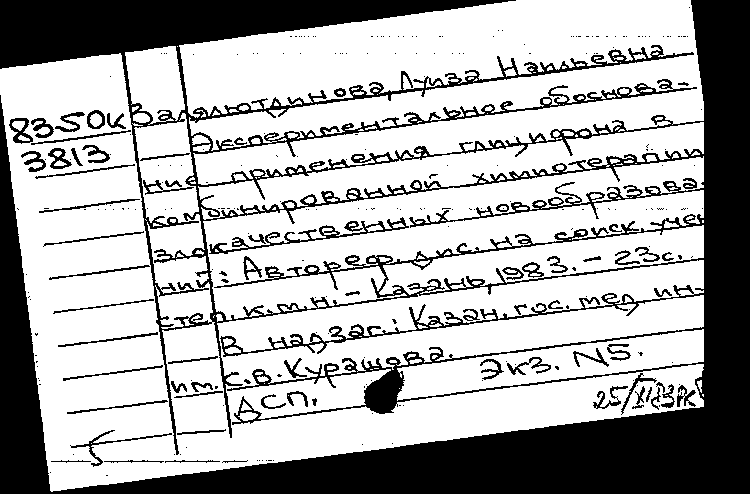 Залялютдинова, Луиза Наильевна.
83-50к
3813
Экспериментальное обоснова-
ние применения глицифона в
комбинированной химиотерапии
злокачественных новообразова-
ний: Автореф. дис. на соиск. учен
степ. к.м.н. - Казань, 1983. - 23с.
В надзаг.: Казан. гос. мед ин-
им. С.В. Курашова.
ДСП. Экз. N5.